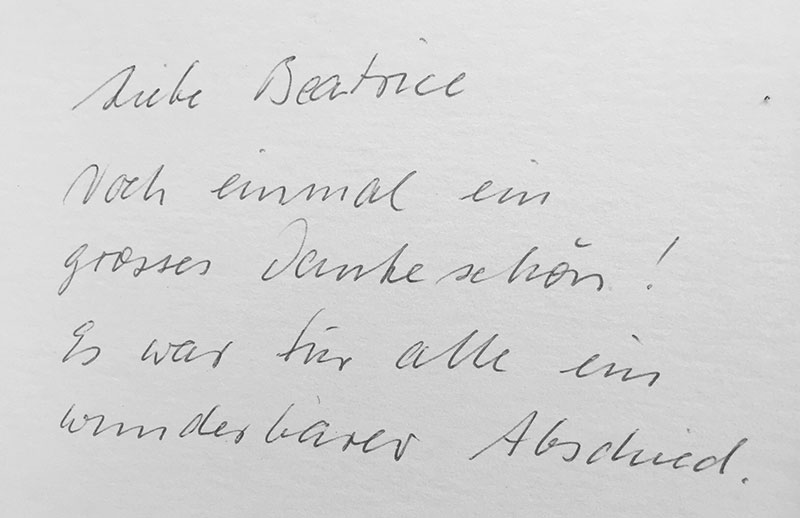 Liebe Beatrice
Noch einmal ein
grosses Dankeschön!
Es war für alle ein
wunderbarer Abschied.